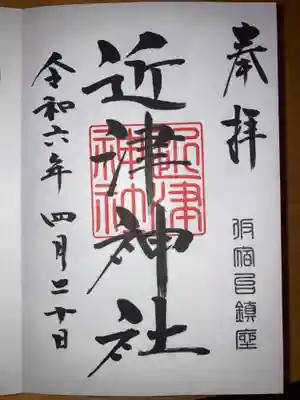 奉拝
仮宿邑鎮座
近津神社
近津
神社
令和六年 四月二十日